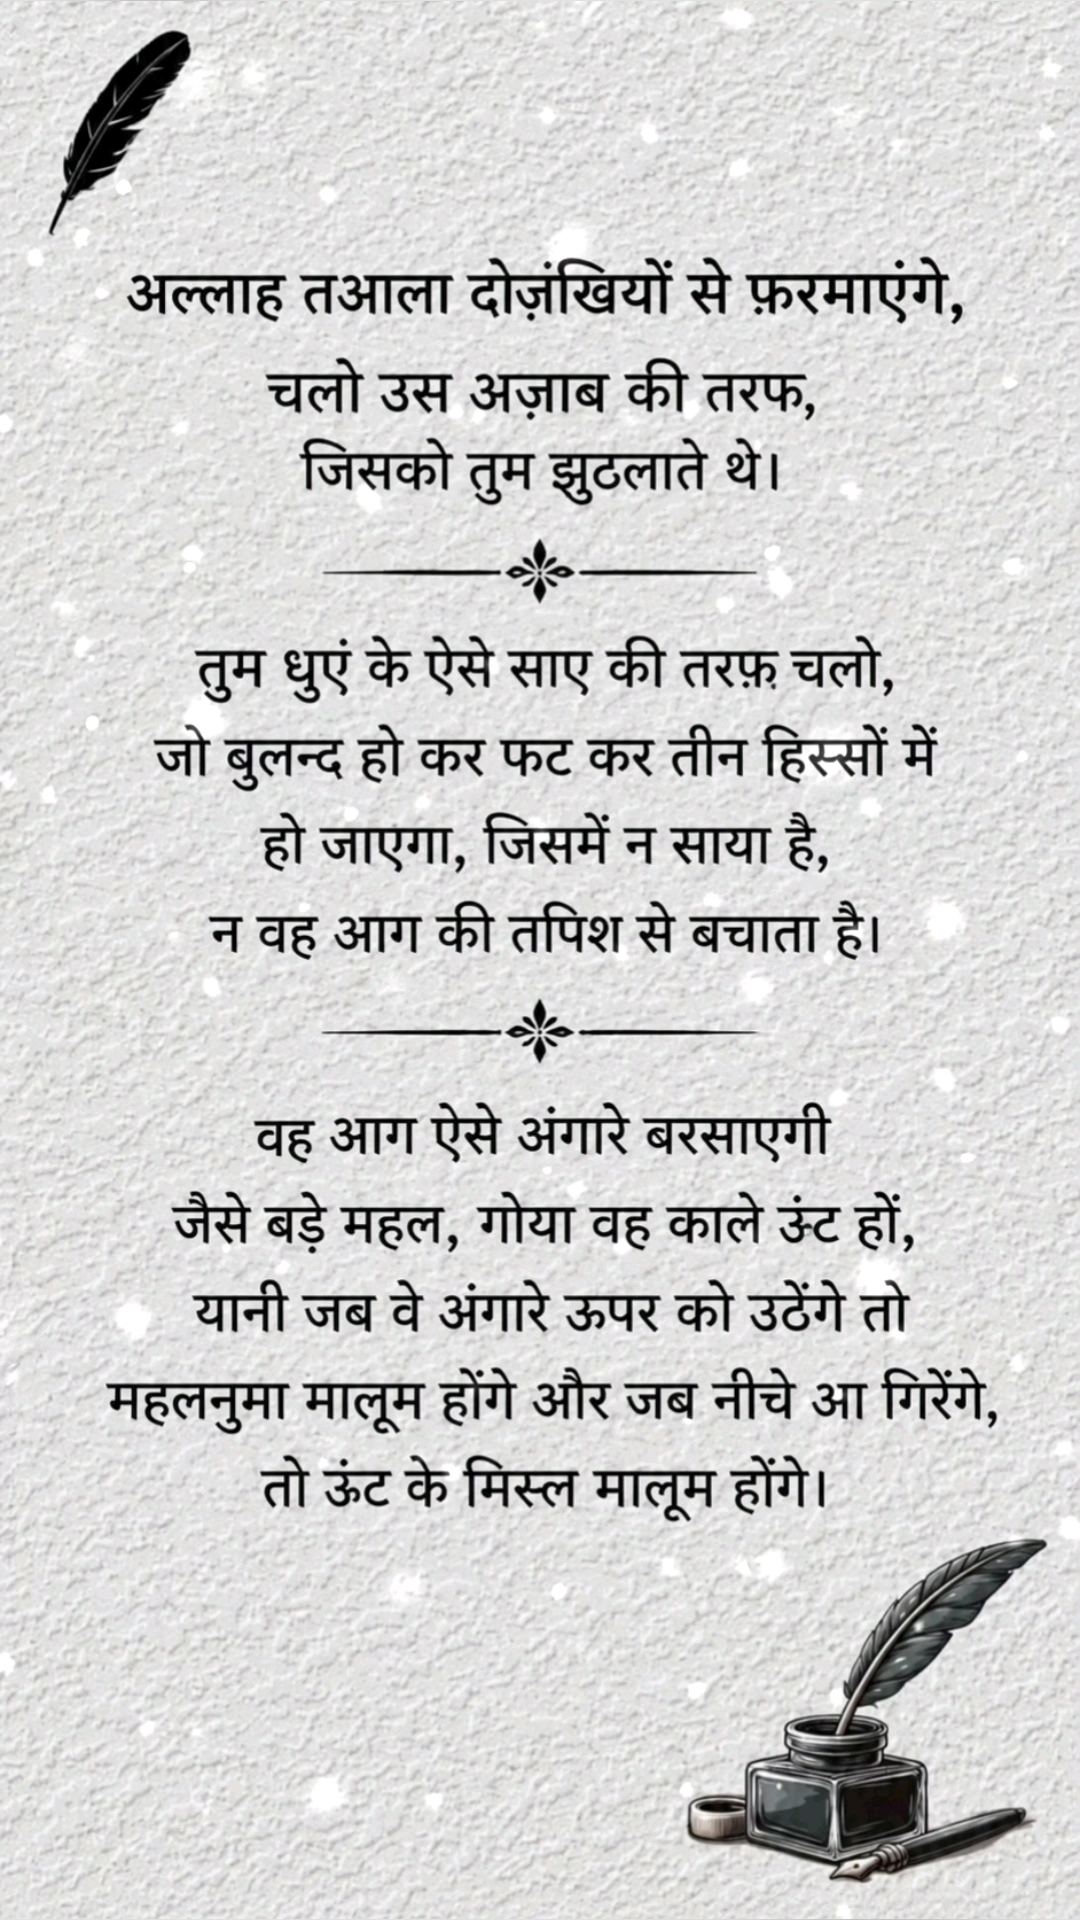 अल्लाह तआला दोज़ंखियों से फ़रमाएंगे,
चलो उस अज़ाब की तरफ,
जिसको तुम झुटलाते थे।
तुम धुएं के ऐसे साए की तरफ़ चलो,
जो बुलन्द हो कर फट कर तीन हिस्सों में
हो जाएगा, जिसमें न साया है,
न वह आग की तपिश से बचाता है।
वह आग ऐसे अंगारे बरसाएगी
जैसे बड़े महल, गोया वह काले ऊंट हों,
यानी जब वे अंगारे ऊपर को उठेंगे तो
महलनुमा मालूम होंगे और जब नीचे आ गिरेंगे,
तो ऊंट के मिस्ल मालूम होंगे।